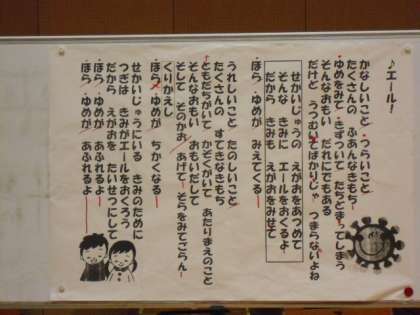 ♪エール！
かなしいこと・つらいこと
たくさんの ふあんなきもち
ゆめをみて・きずついて たちどまってしまう
そんなおもい だれにでもある
だけど うつむいてばかりじゃ つまらないよね
せかいじゅうの えがおをあつめて
そんな きみに エールをおくるよ
だから きみも えがおをみせて
ほら ゆめが みえてくる―
うれしいこと たのしいこと
たくさんの すてきなきもち
ともだちがいて かぞくがいて あたりまえのこと
そんなおもい おもいだして
そして そのかお あげて そらをみてごらん
くりかえし
ほら ゆめが ちかくなる―
せかいじゅうにいる きみのために
つぎは きみがエールをおくろう
だから えがおを たいせつにして
ほら・ゆめが あふれるよ―
ほら・ゆめが あふれるよ―